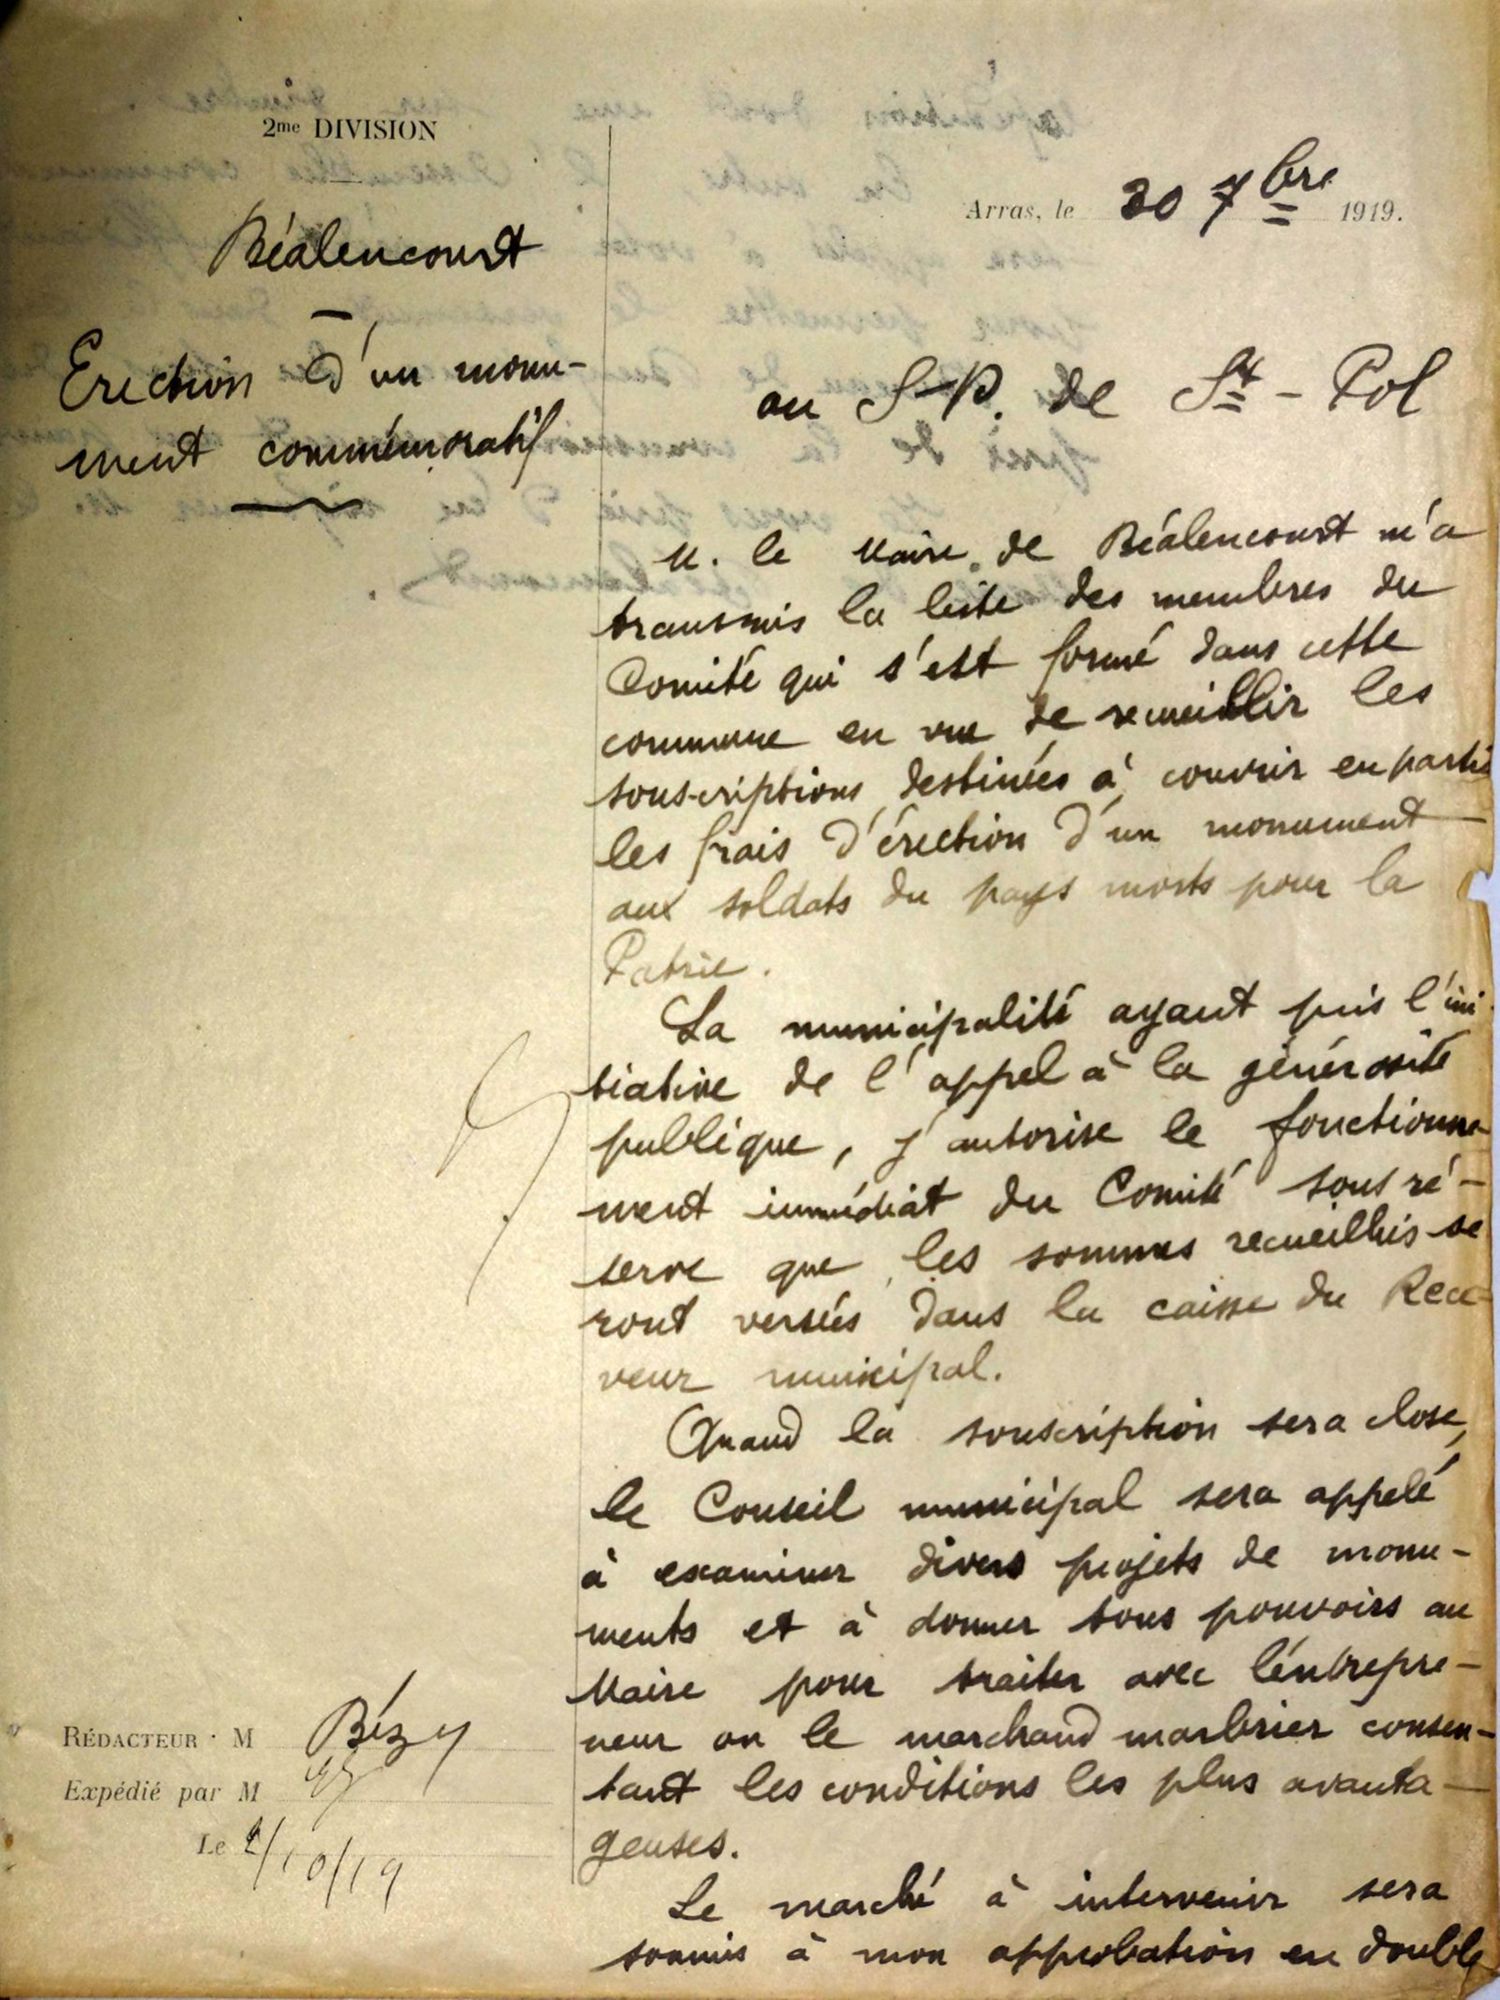 2me DIVISION
Béalencourt
Erection d'un monu-
ment commémoratif
Arras, le 30 7bre 1919.
au S-P. de St-Pol
M. le Maire de Béalencourt m'a
transmis la liste des membres du
Comité qui s'est formé dans cette
commune en vue de recueillir les
souscriptions destinées à couvrir en partie
les frais d'érection d'un monument
aux soldats du pays morts pour la
Patrie.
La municipalité ayant pris l'ini-
tiative de l'appel à la générosité
publique, j'autorise le fonctionne-
ment immédiat du Comité sous ré-
serve que les sommes recueillies se-
ront versées dans la caisse du Rece-
veur municipal.
Quand la souscription sera close,
le Conseil municipal sera appelé
à examiner divers projets de monu-
ments et à donner tous pouvoirs au
Maire pour traiter avec l'entrepre-
neur ou le marchand marbrier consen-
tant les conditions les plus avanta-
geuses.
Le marché à intervenir sera
soumis à mon approbation en double
RÉDACTEUR : M Bézy
Expédié par M
Le 2/10/19